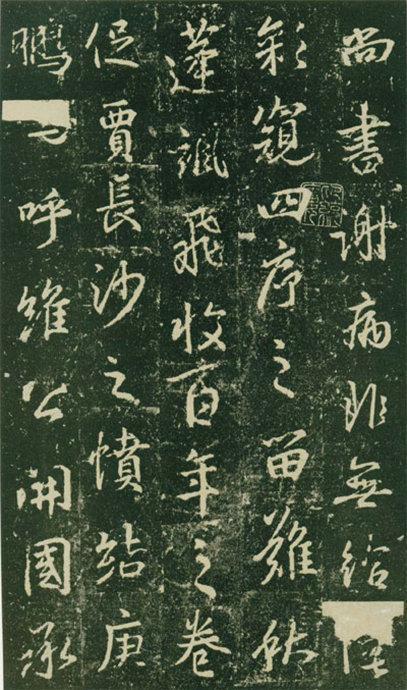 尚書謝病非無給
彩窺四序之留難秋
蓬颯飛收百年之卷
促賈長沙之憤結庚
鵬呼維公開國承